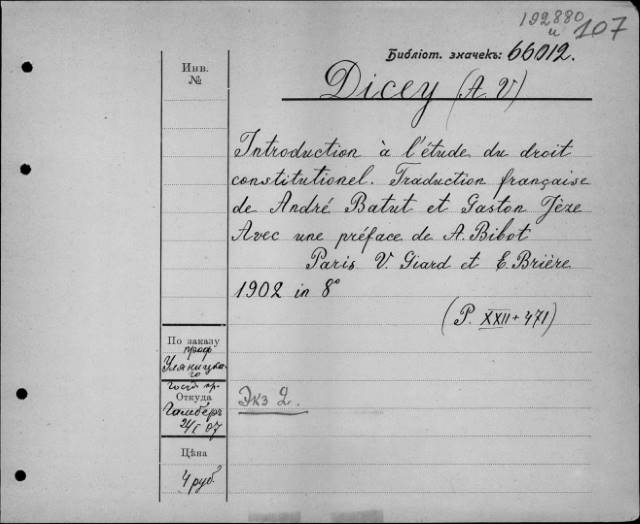 192880
и 107
Библіот. значекъ: 66012.
Инв.
№
Dicey (A. V)
Introduction à l'étude du droit
constitutionel. Traduction française
de André Batut et Gaston Jèze
Avec une préface de A. Bibot
Paris V. Giard et E. Brière
1902 in 8º
(P. XXII + 471)
По заказу
проф
Уляницко-
го
Откуда
Гамберъ
24/I 07
Экз 2.
Цѣна
4 руб